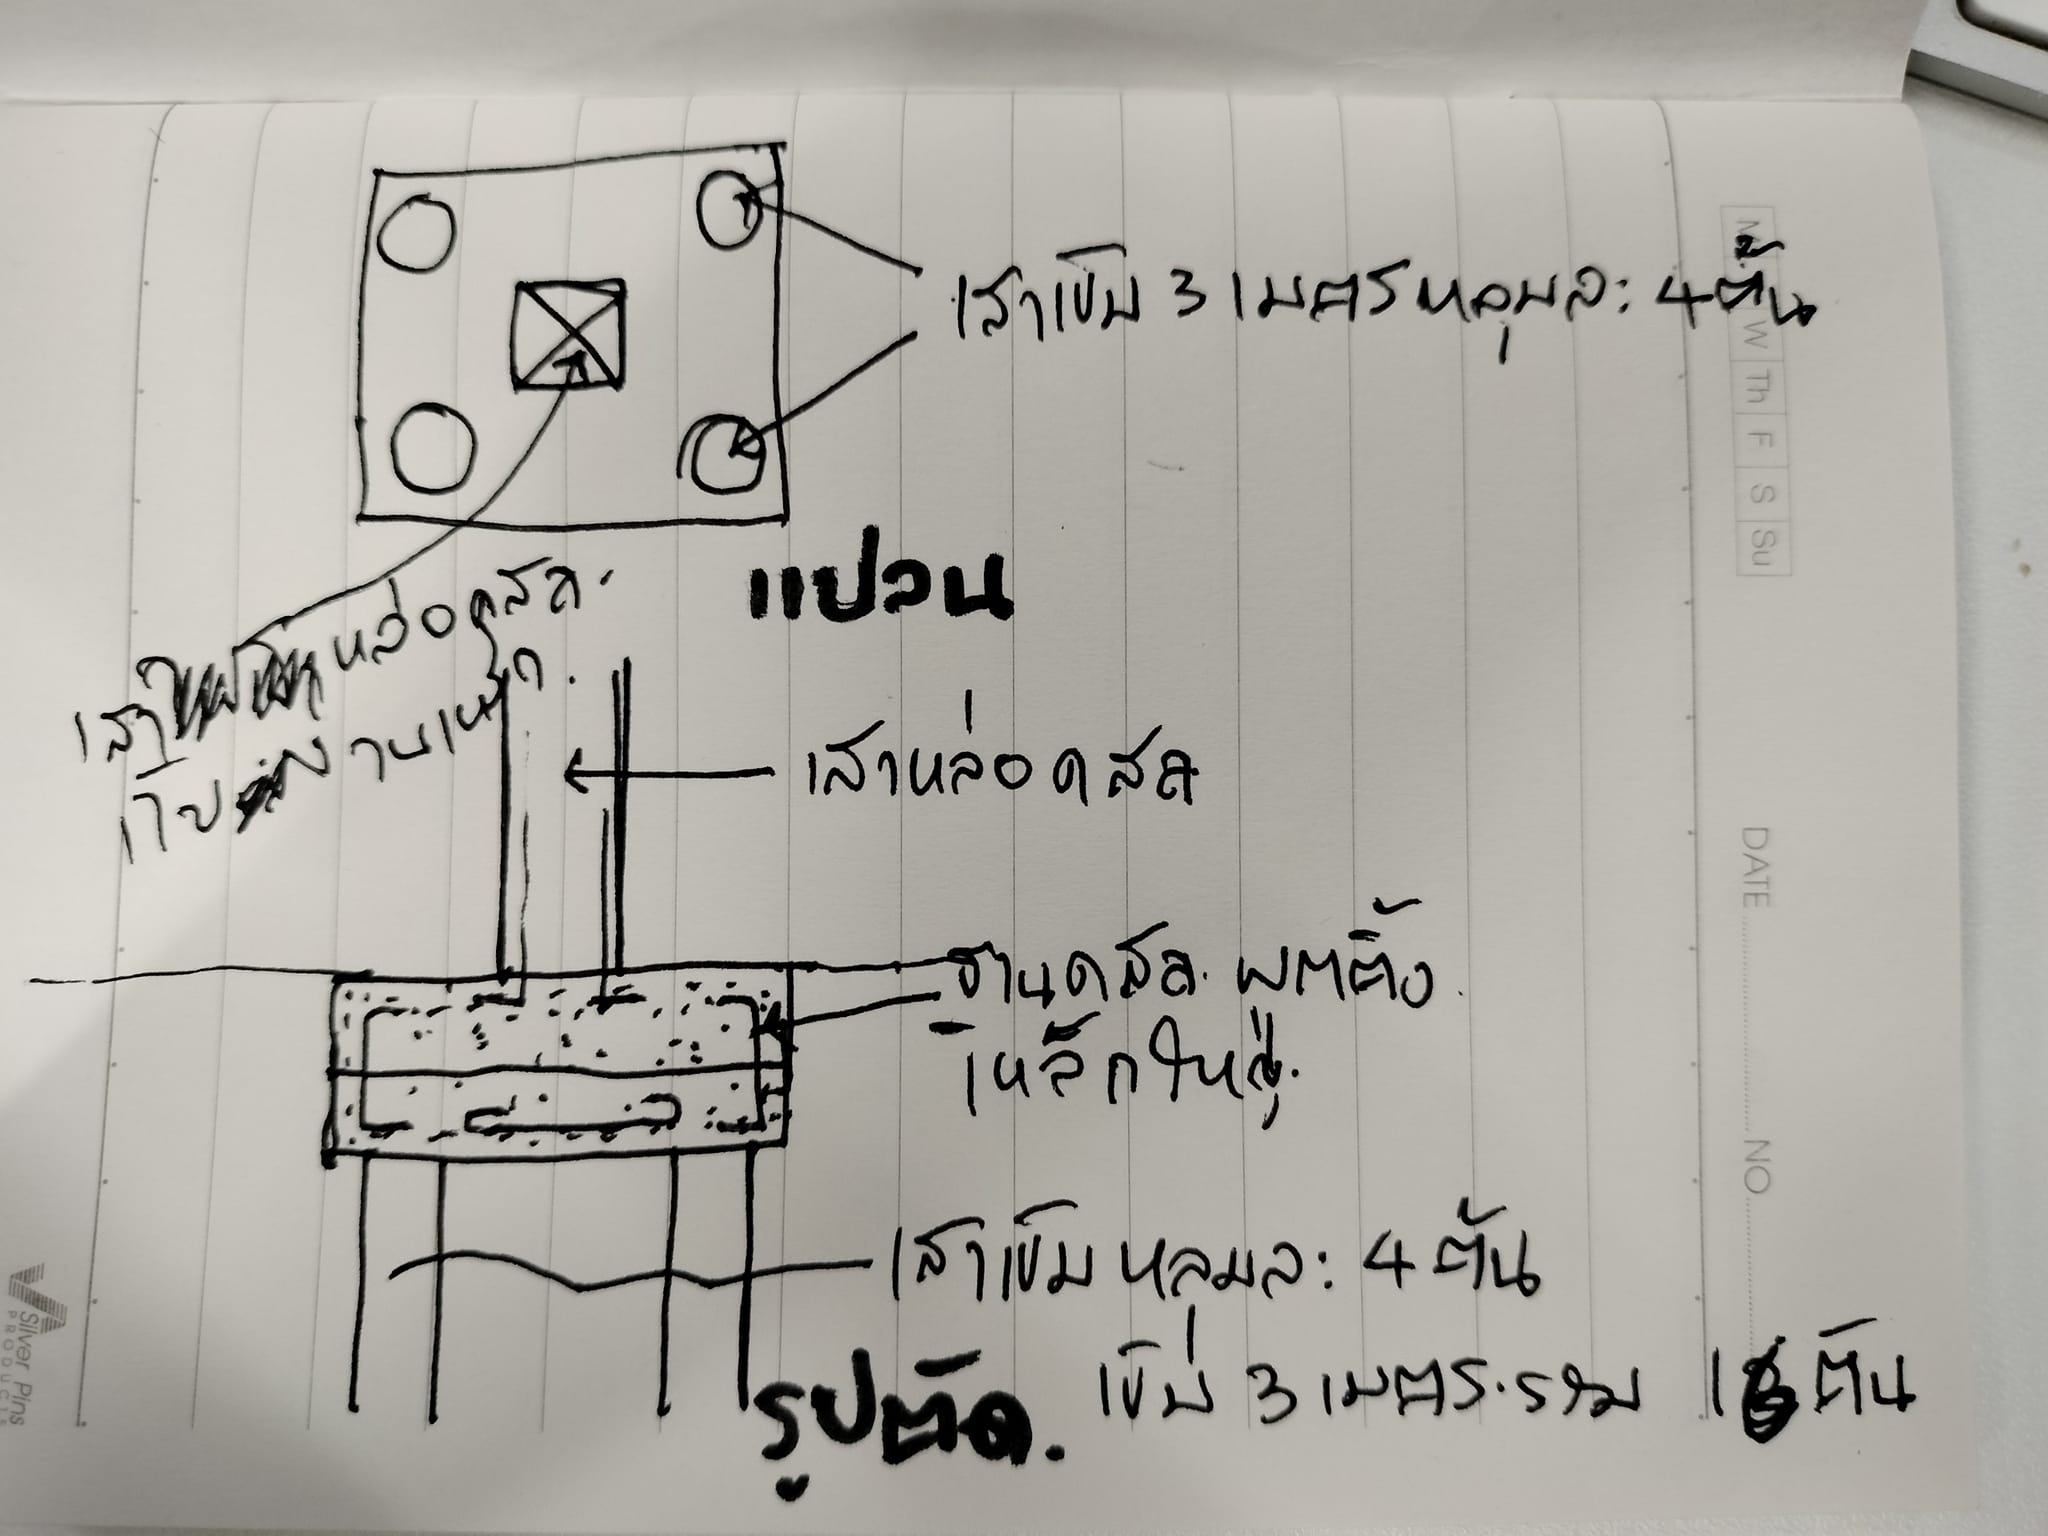 เสาเข็ม 3 เมตรหลุมละ 4 ต้น
แปลน
เสา หล่อคสล.
เสาหล่อคสล
ฐานคสล. ฟุตติ้ง
เหล็กใหญ่.
เสาเข็ม หลุมละ 4 ต้น
เข็ม 3 เมตร.รวม ต้น
รูปตัด.
M
W
Th
F
S
Su
DATE
NO.
Silver Pins
PRODUCTS